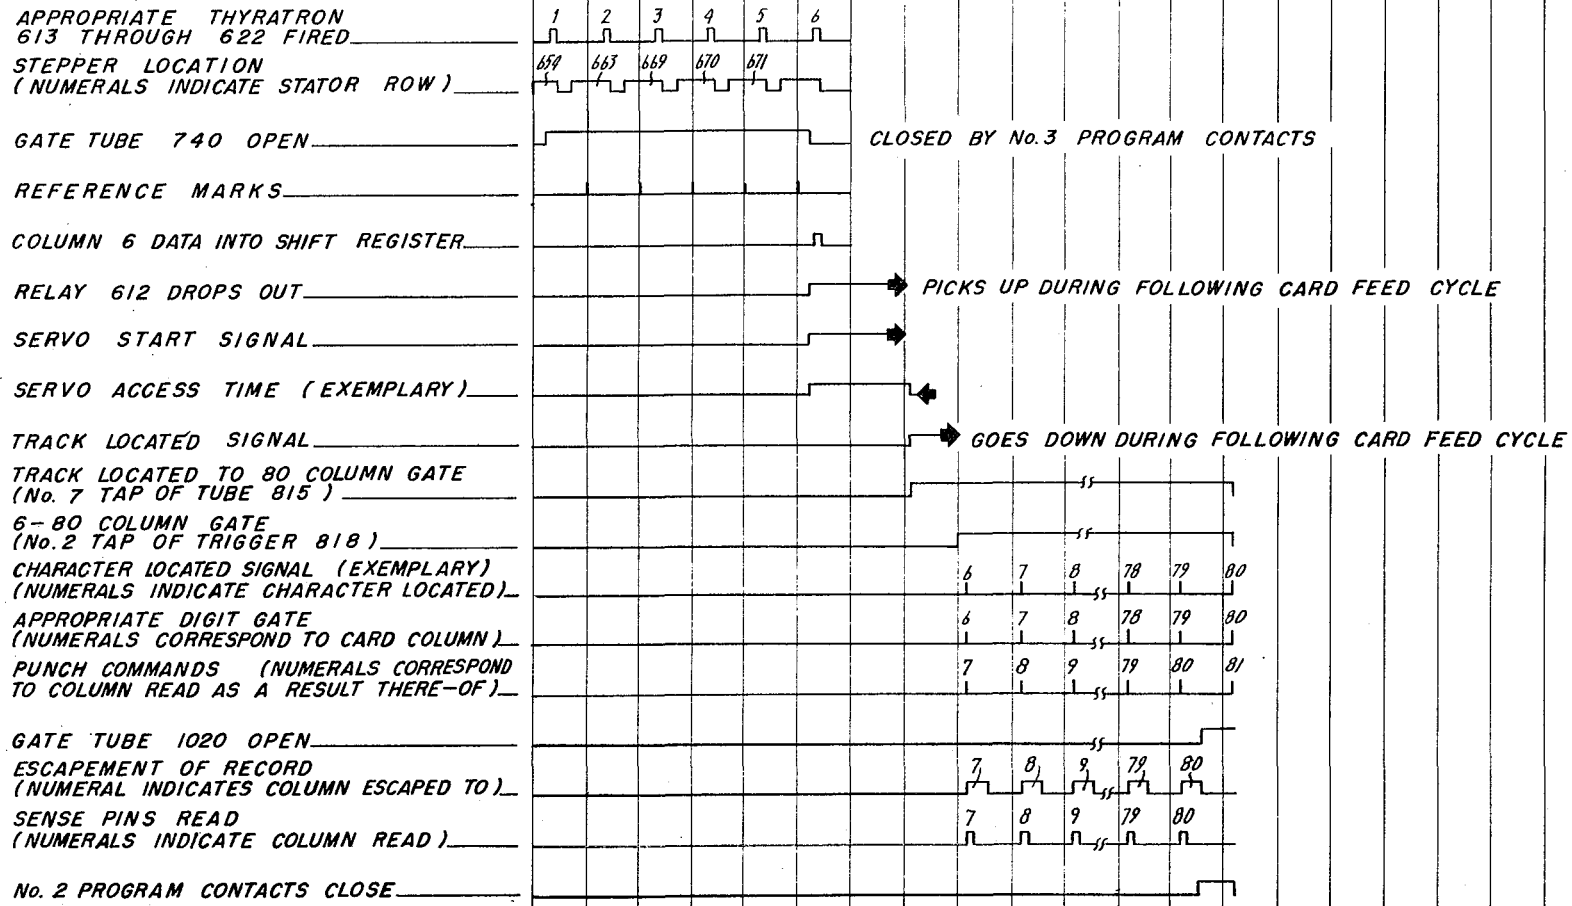 APPROPRIATE THYRATRON
613 THROUGH 622 FIRED
1 2 3 4 5 6
STEPPER LOCATION
(NUMERALS INDICATE STATOR ROW)
654 663 669 670 671
GATE TUBE 740 OPEN
CLOSED BY No.3 PROGRAM CONTACTS
REFERENCE MARKS
COLUMN 6 DATA INTO SHIFT REGISTER
RELAY 612 DROPS OUT
PICKS UP DURING FOLLOWING CARD FEED CYCLE
SERVO START SIGNAL
SERVO ACCESS TIME (EXEMPLARY)
TRACK LOCATED SIGNAL
GOES DOWN DURING FOLLOWING CARD FEED CYCLE
TRACK LOCATED TO 80 COLUMN GATE
(No. 7 TAP OF TUBE 815)
6-80 COLUMN GATE
(No.2 TAP OF TRIGGER 818)
CHARACTER LOCATED SIGNAL (EXEMPLARY)
(NUMERALS INDICATE CHARACTER LOCATED)
6 7 8 78 79 80
APPROPRIATE DIGIT GATE
(NUMERALS CORRESPOND TO CARD COLUMN)
6 7 8 78 79 80
PUNCH COMMANDS (NUMERALS CORRESPOND
TO COLUMN READ AS A RESULT THERE-OF)
7 8 9 79 80 81
GATE TUBE 1020 OPEN
ESCAPEMENT OF RECORD
(NUMERAL INDICATES COLUMN ESCAPED TO)
7 8 9 79 80
SENSE PINS READ
(NUMERALS INDICATE COLUMN READ)
7 8 9 79 80
No. 2 PROGRAM CONTACTS CLOSE